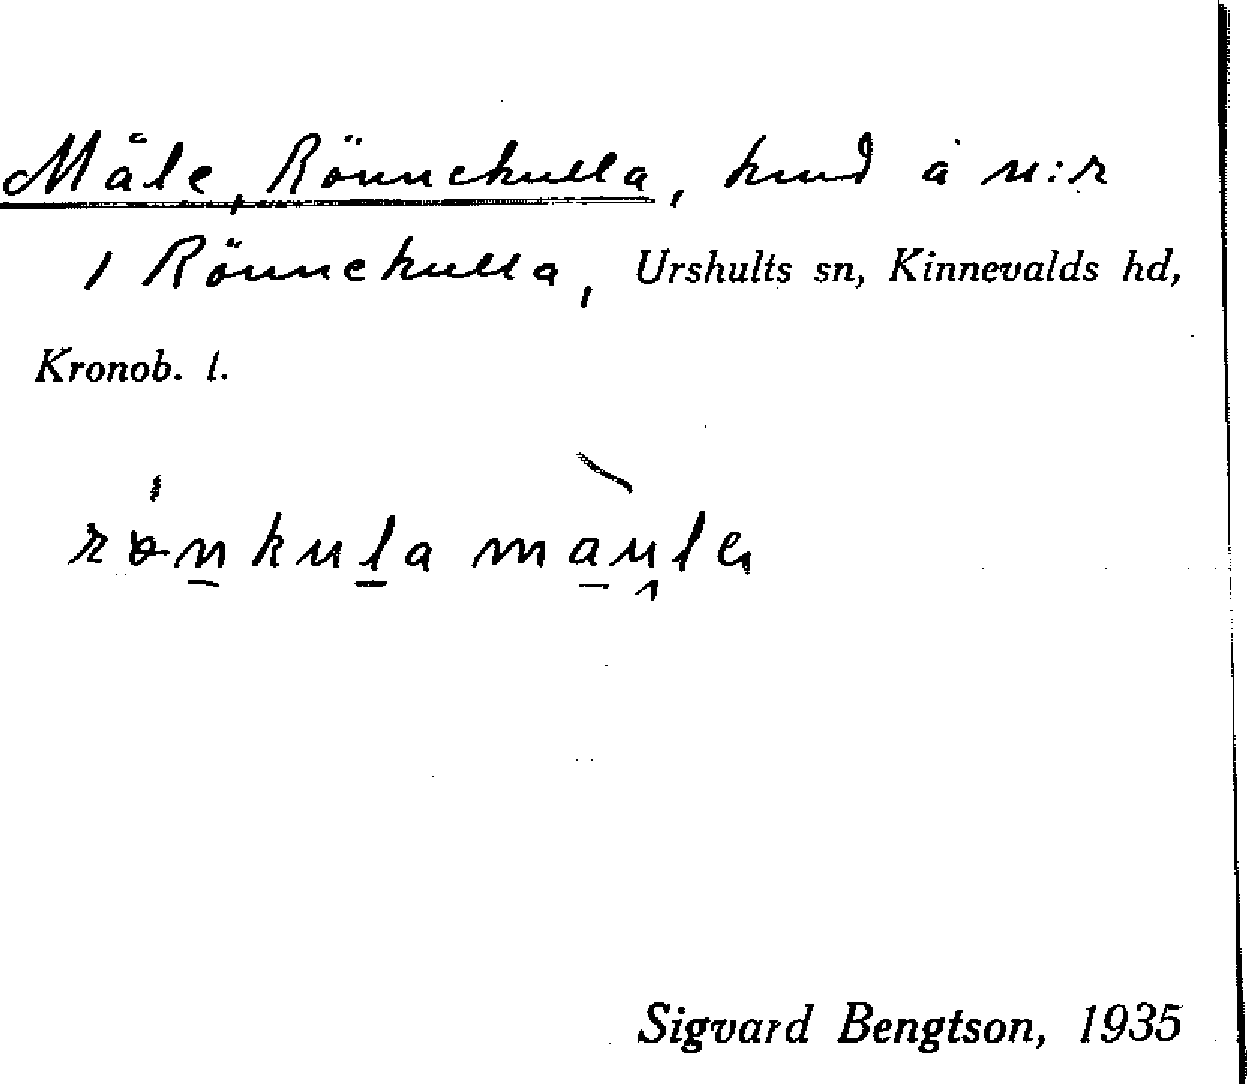 Måle, Rönnekulla, hmd å n:r
1 Rönnekulla, Urshults sn, Kinnevalds hd,
Kronob. l.
Sigvard Bengtson, 1935